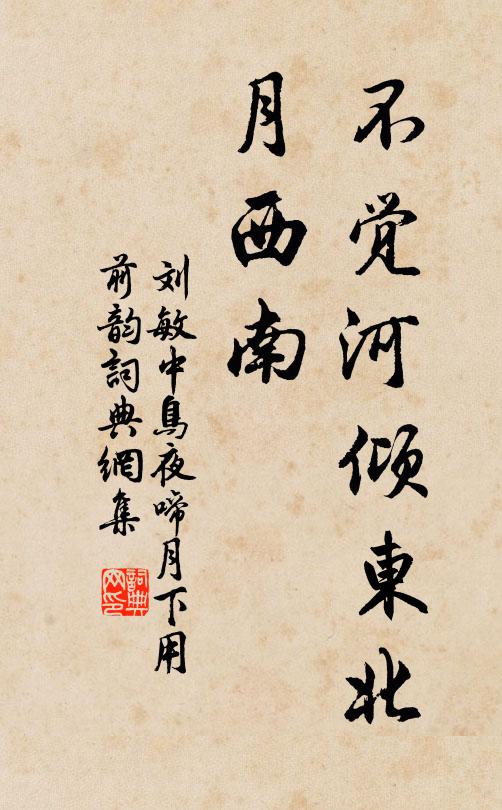 不觉河倾東北
月西南
刘敏中烏夜啼月下用
前韵詞典網集
詞典网印